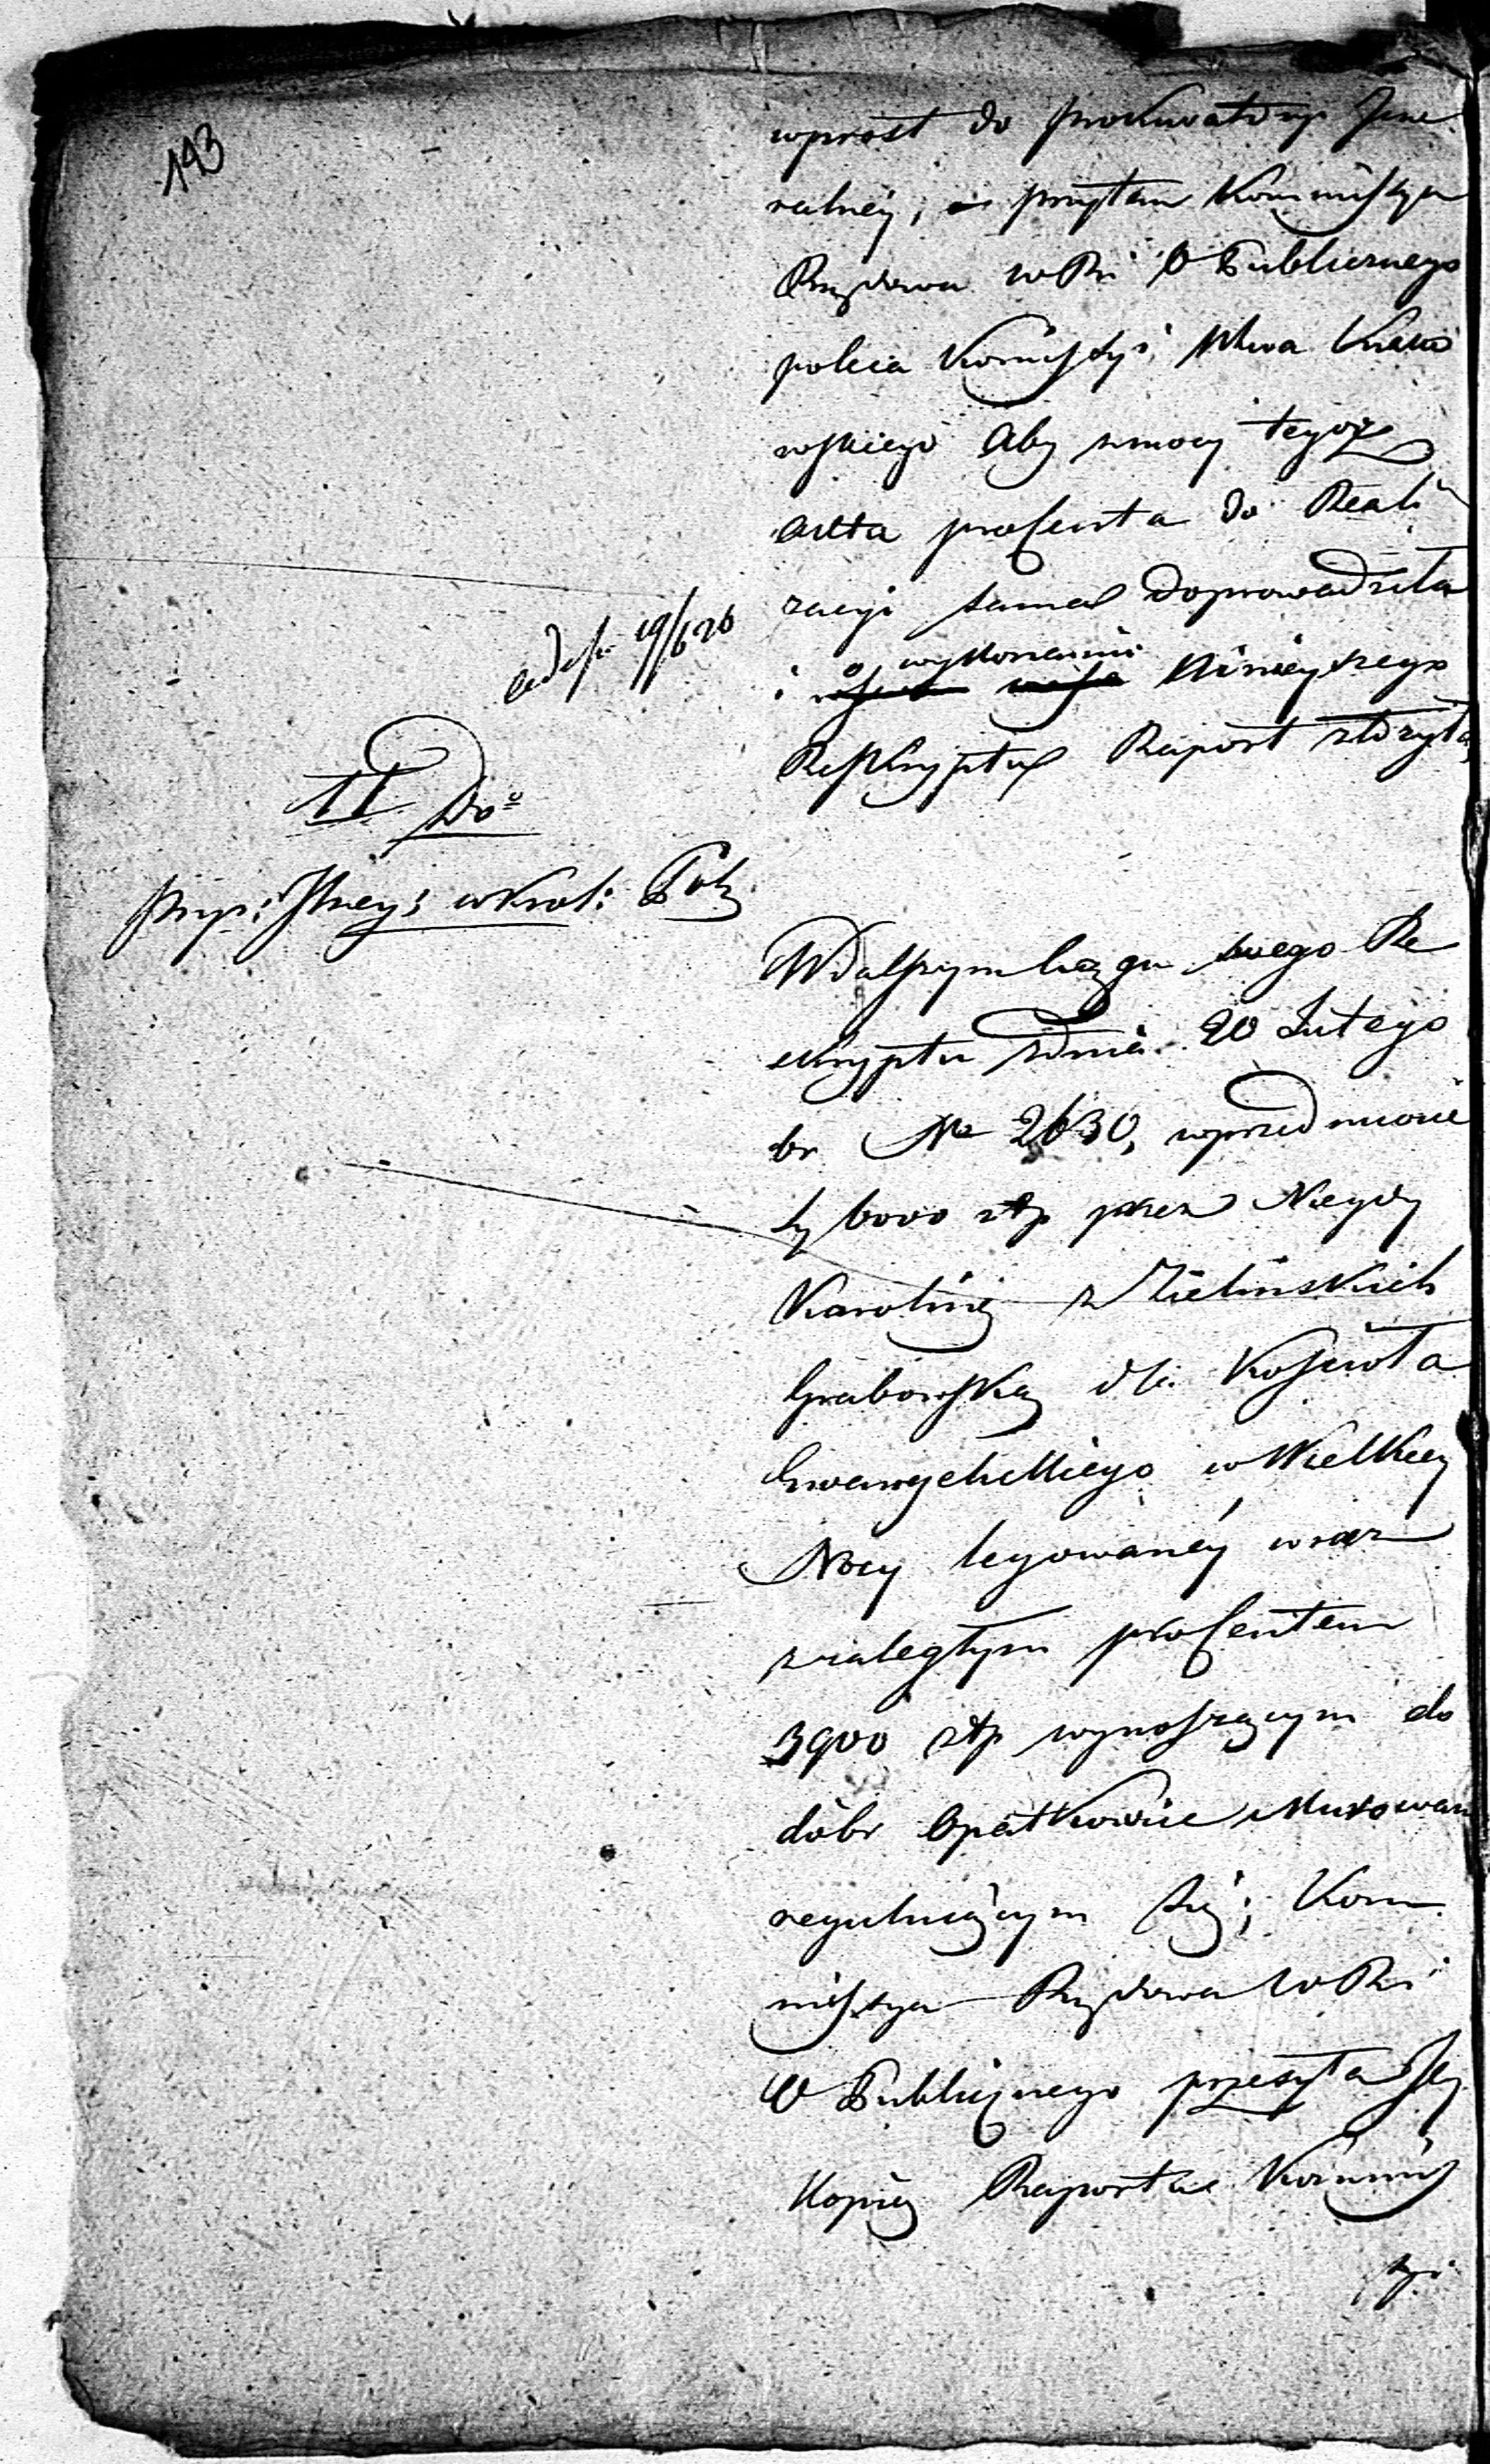 193
wprost do Prokuratoryi Jene
ralnéy, przytem Kommissya
Rządowa WR i O Publicznego
poleca Kommissyi Wdwa Krako
wskiego Aby z mocy tegoż
Akta procenta do Reali
zacyi sama doprowadziła
i o wykonaniu Ninieyszego
Reskryptu Raport złożyła
19/6 26
11
Do
Przy: Jłney: w Krol: Pol:
W dalszym ciągu swego Re
skryptu z dnia 20 Lutego
br No 2630, w przedmiocie
6000 złp przez Niegdy
Karolinę z Zielinskich
Grabowską dla Kościoła
Ewangelickiego w Wielkiey
Nocy legowanéy wraz
z zaległym procentem
3900 złp wynoszącym do
dóbr Opatkowice Murowane
regulującym się; Kom
missya Rządowa WR i
O Publicznego przesyła Jey
Kopią Raportu Kommis
syi